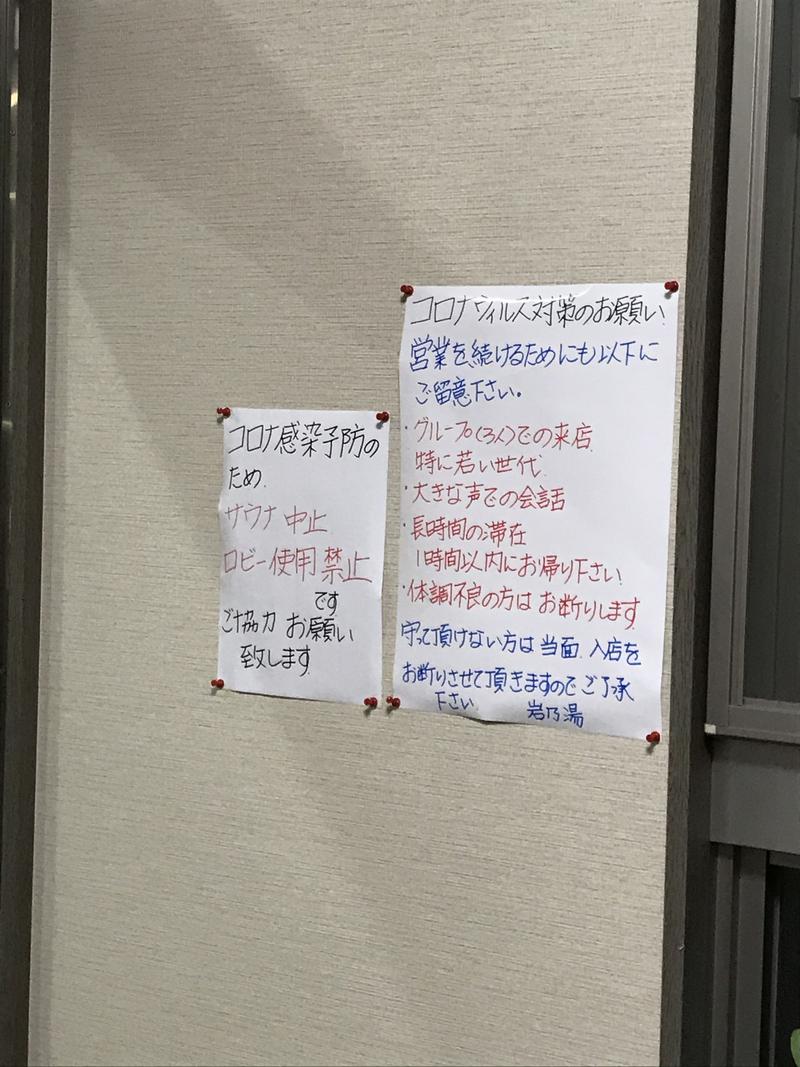 コロナ感染予防の
ため
サウナ中止
ロビー使用禁止
です
ご協力 お願い
致します
コロナウィルス対策のお願い
営業を続けるためにも以下に
ご留意下さい。
・グループ(3人)での来店
特に若い世代
・大きな声での会話
・長時間の滞在
1時間以内にお帰り下さい!
・体調不良の方は お断りします
守って頂けない方は 当面 入店を
お断りさせて頂きますのでご了承
下さい 岩乃湯